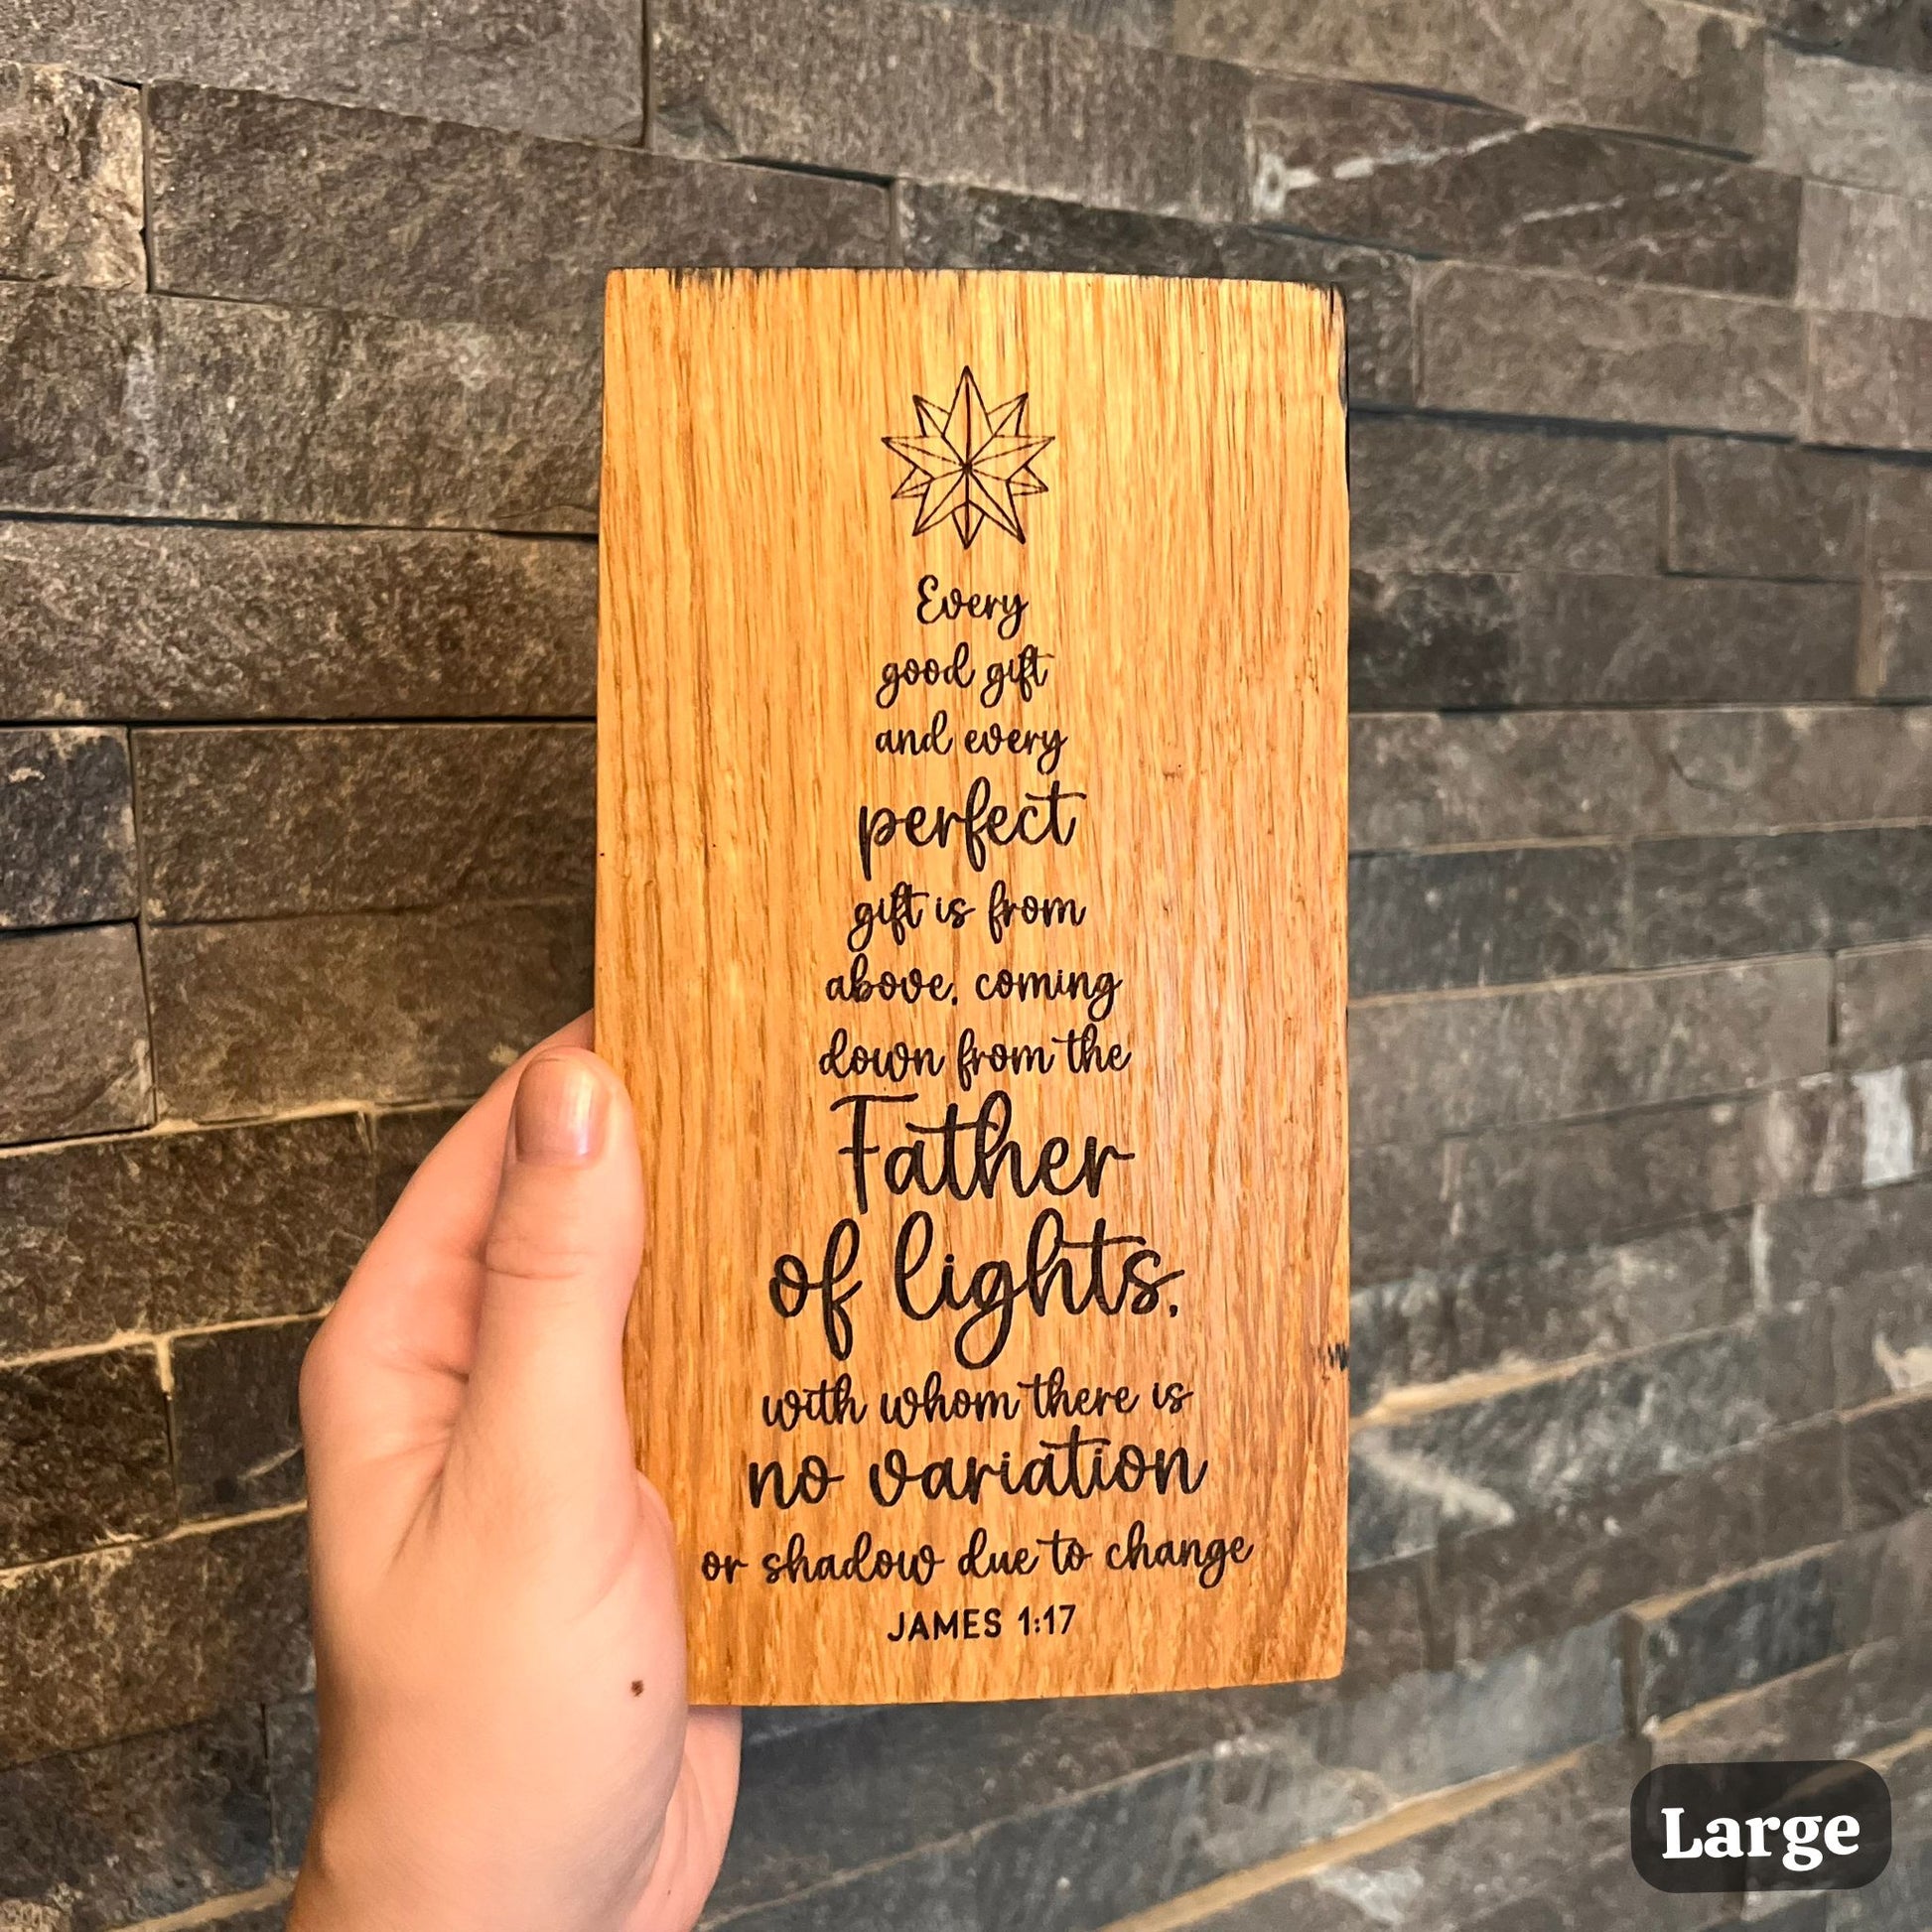 Every
good gift
and every
perfect
gift is from
above, coming
down from the
Father
of lights,
with whom there is
no variation
or shadow due to change
JAMES 1:17
Large